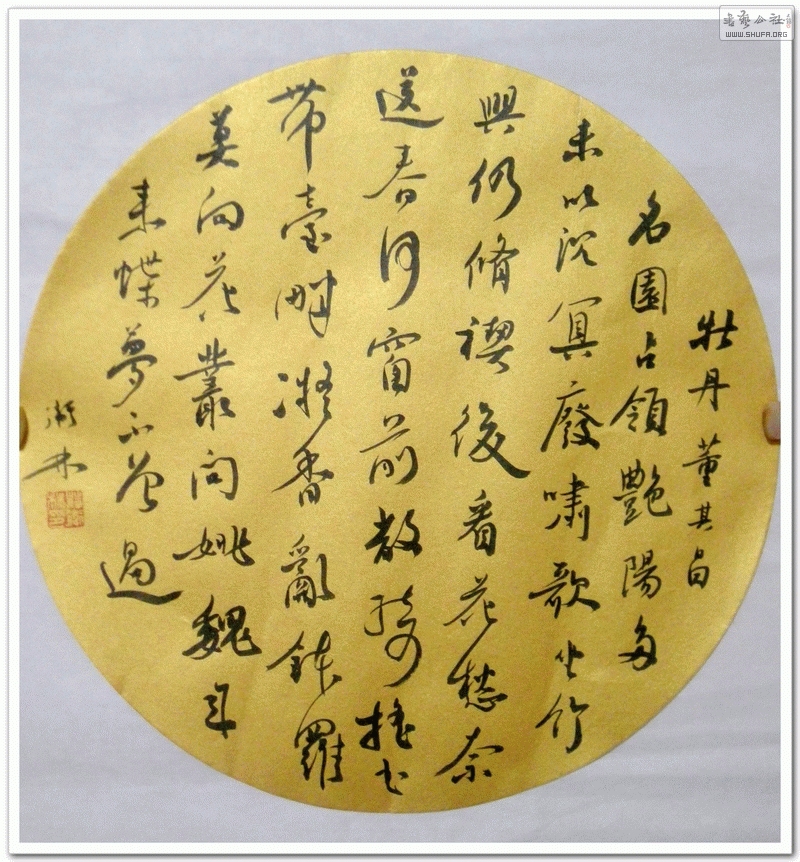 牡丹 董其昌
名園占領艷陽多
未以沉冥廢嘯歌坐竹
興仍脩禊後看花愁奈
送春何窗前散綺搖書
帶臺畔凝香亂鉢羅
莫向花叢問姚魏年
來蝶夢不曾過
林
書藝公社
WWW.SHUFA.ORG